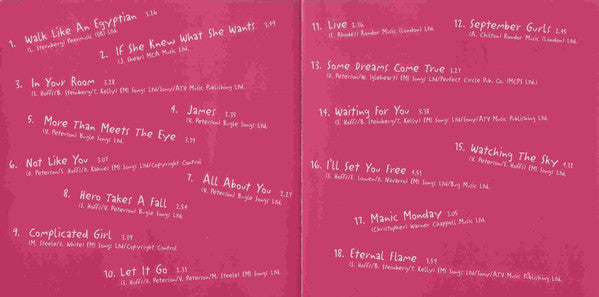 1. Walk Like An Egyptian 3.26
(L. Sternberg) Peermusic (UK) Ltd.
2. If She Knew What She Wants 3.49
(J. Shear) MCA Music Ltd.
3. In Your Room 3.28
(S. Hoffs/B. Steinberg/T. Kelly) EMI Songs Ltd/Sony/ATV Music Publishing Ltd.
4. James 2.35
(V. Peterson) Bugle Songs Ltd.
5. More Than Meets The Eye 3.19
(V. Peterson) Bugle Songs Ltd.
6. Not Like You 3.07
(D. Peterson/S. Hoffs/D. Kahne) EMI Songs Ltd/Copyright Control
7. All About You 2.22
(V. Peterson) Bugle Songs Ltd.
8. Hero Takes A Fall 2.54
(S. Hoffs/V. Peterson) Bugle Songs Ltd.
9. Complicated Girl 3.39
(M. Steele/D. White) EMI Songs Ltd/Copyright Control
10. Let It Go 2.31
(S. Hoffs/D. Peterson/V. Peterson/M. Steele) EMI Songs Ltd.
11. Live
(E. Rhodes) Rondor Music (London) Ltd.
12. September Gurls 2.45
(A. Chilton) Rondor Music (London) Ltd.
13. Some Dreams Come True 3.27
(D. Peterson/W. Iglehart) EMI Songs Ltd/Perfect Circle Pub. Co. (MCPS Ltd.)
14. Waiting For You 3.38
(S. Hoffs/B. Steinberg/T. Kelly) EMI Songs Ltd/Sony/ATV Music Publishing Ltd.
15. Watching The Sky 4.12
(V. Peterson/S. Hoffs) EMI Songs Ltd.
16. I'll Set You Free 4.51
(S. Hoffs/E. Lowen/D. Navarro) EMI Songs Ltd/Bug Music Ltd.
17. Manic Monday 3.05
(Christopher) Warner Chappell Music Ltd.
18. Eternal Flame 3.59
(S. Hoffs/B. Steinberg/T. Kelly) EMI Songs Ltd/Sony/ATV Music Publishing Ltd.